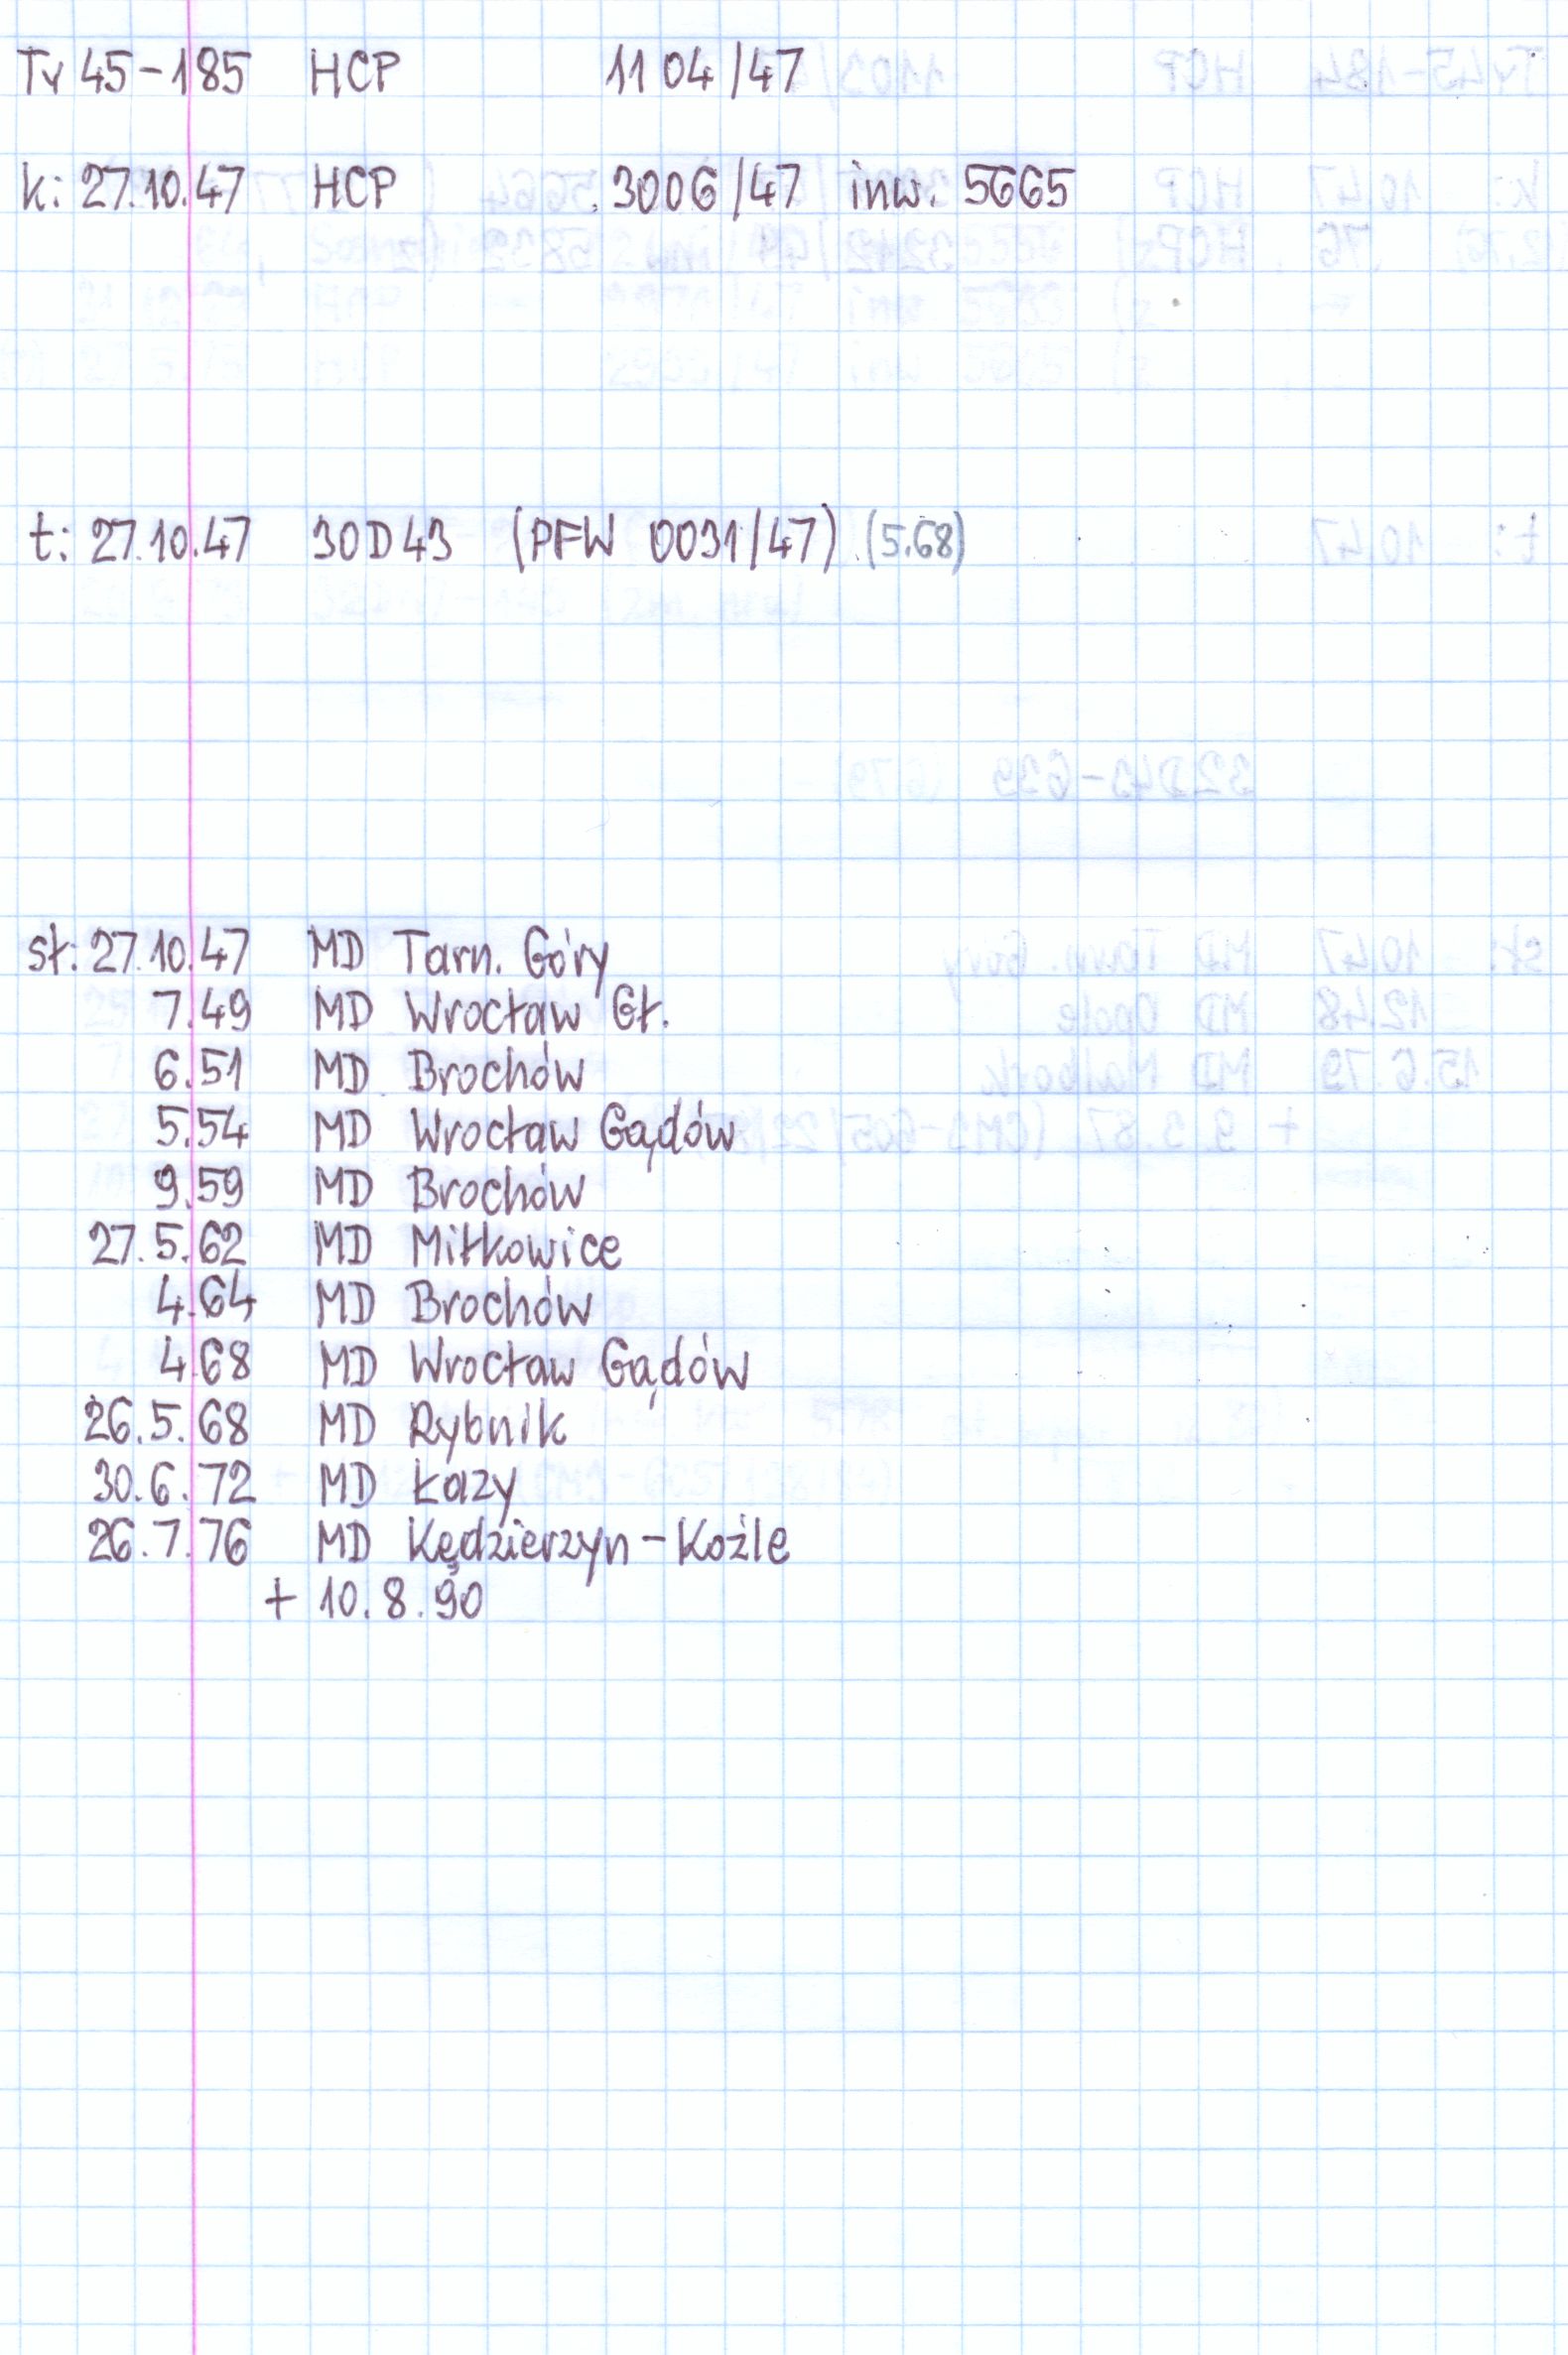 Ty 45-185 HCP 1104/47
k: 27.10.47 HCP 3006/47 inw. 5665
t: 27.10.47 30D43 (PFW 0031/47) (5.68)
st: 27.10.47 MD Tarn. Góry
7.49 MD Wrocław Gł.
6.51 MD Brochów
5.54 MD Wrocław Gądów
9.59 MD Brochów
27.5.62 MD Miłkowice
4.64 MD Brochów
4.68 MD Wrocław Gądów
26.5.68 MD Rybnik
30.6.72 MD Łazy
26.7.76 MD Kędzierzyn-Koźle
+ 10.8.90